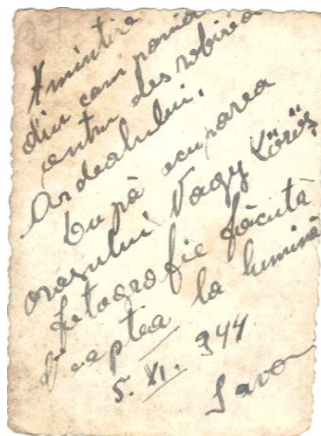 Amintire
din campania
pentru desrobirea
Ardealului.
După ocuparea
orașului Nagy Körös
fotografie făcută
noaptea la lumină
5. XI. 944.